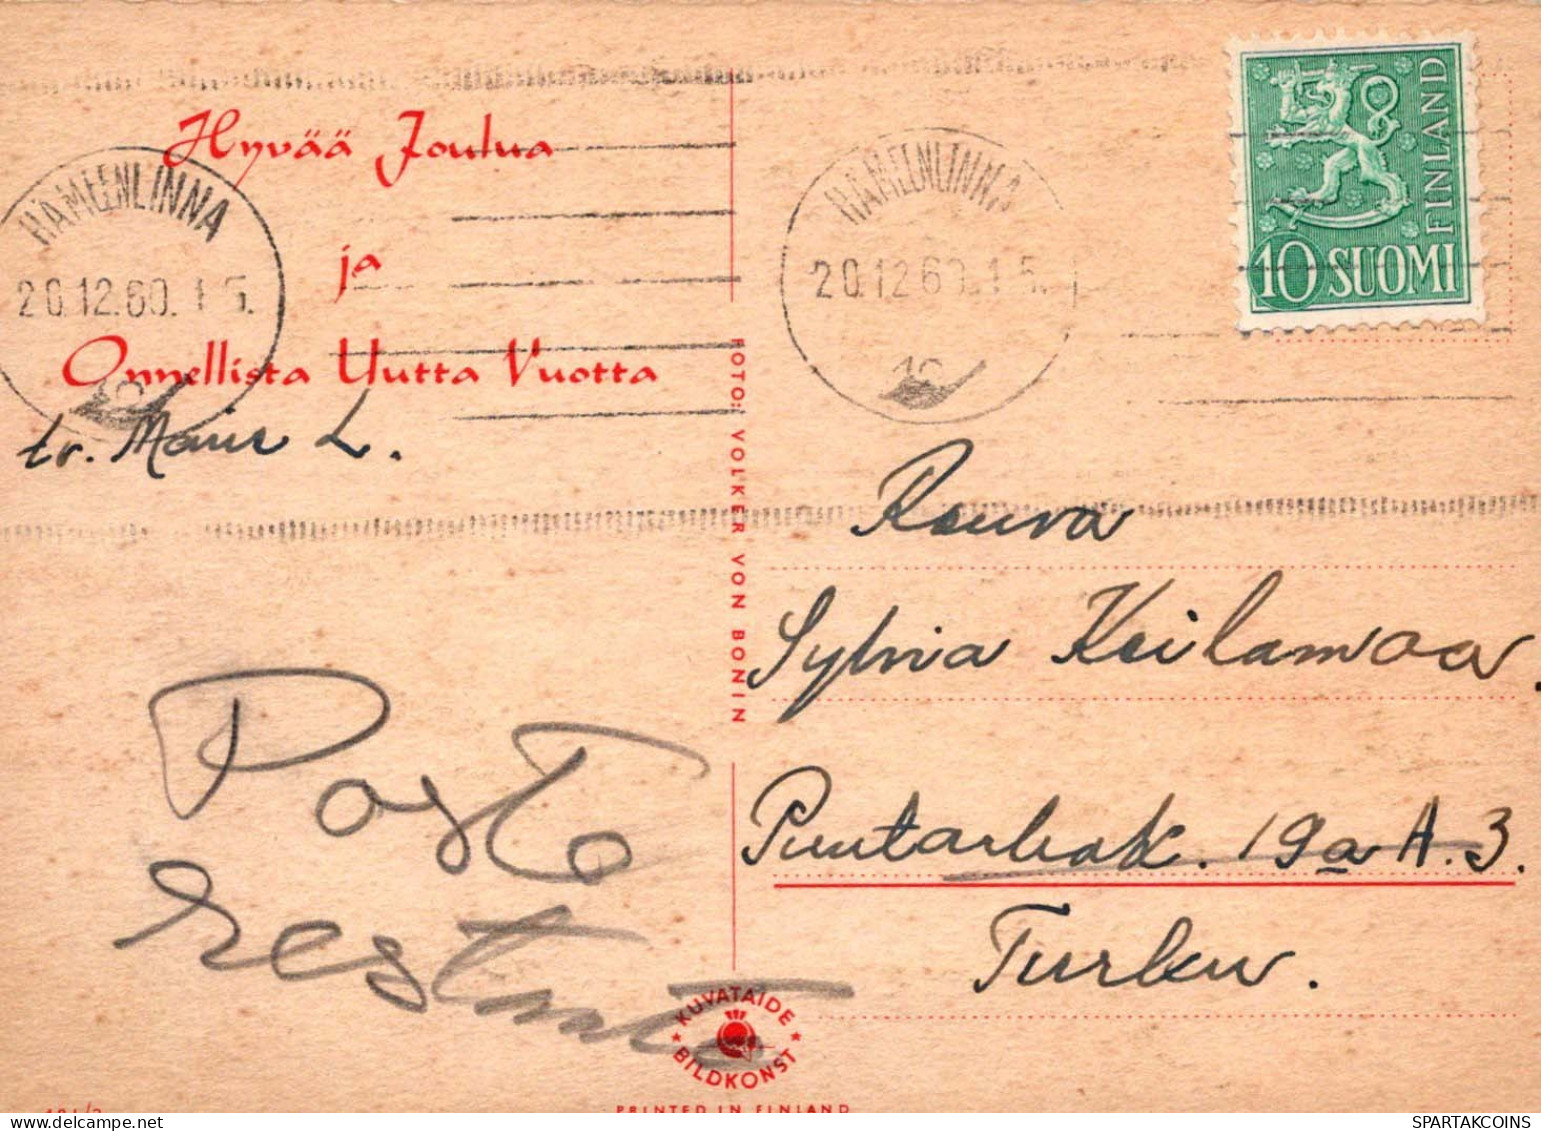 Hyvää Joulua
ja
Onnellista Uutta Vuotta
HÄMEENLINNA
20.12.60.15.
10
HÄMEENLINNA
20.12.60.15.
10
FINLAND
10 SUOMI
tv. L.
FOTO: VOLKER VON BONIN
Rouva
Sylvia Keilamaa.
Puutarhak. 19a A. 3.
Turku.
Posto
restant
KUVATAIDE
BILDKONST
PRINTED IN FINLAND
SPARTAKCOINS